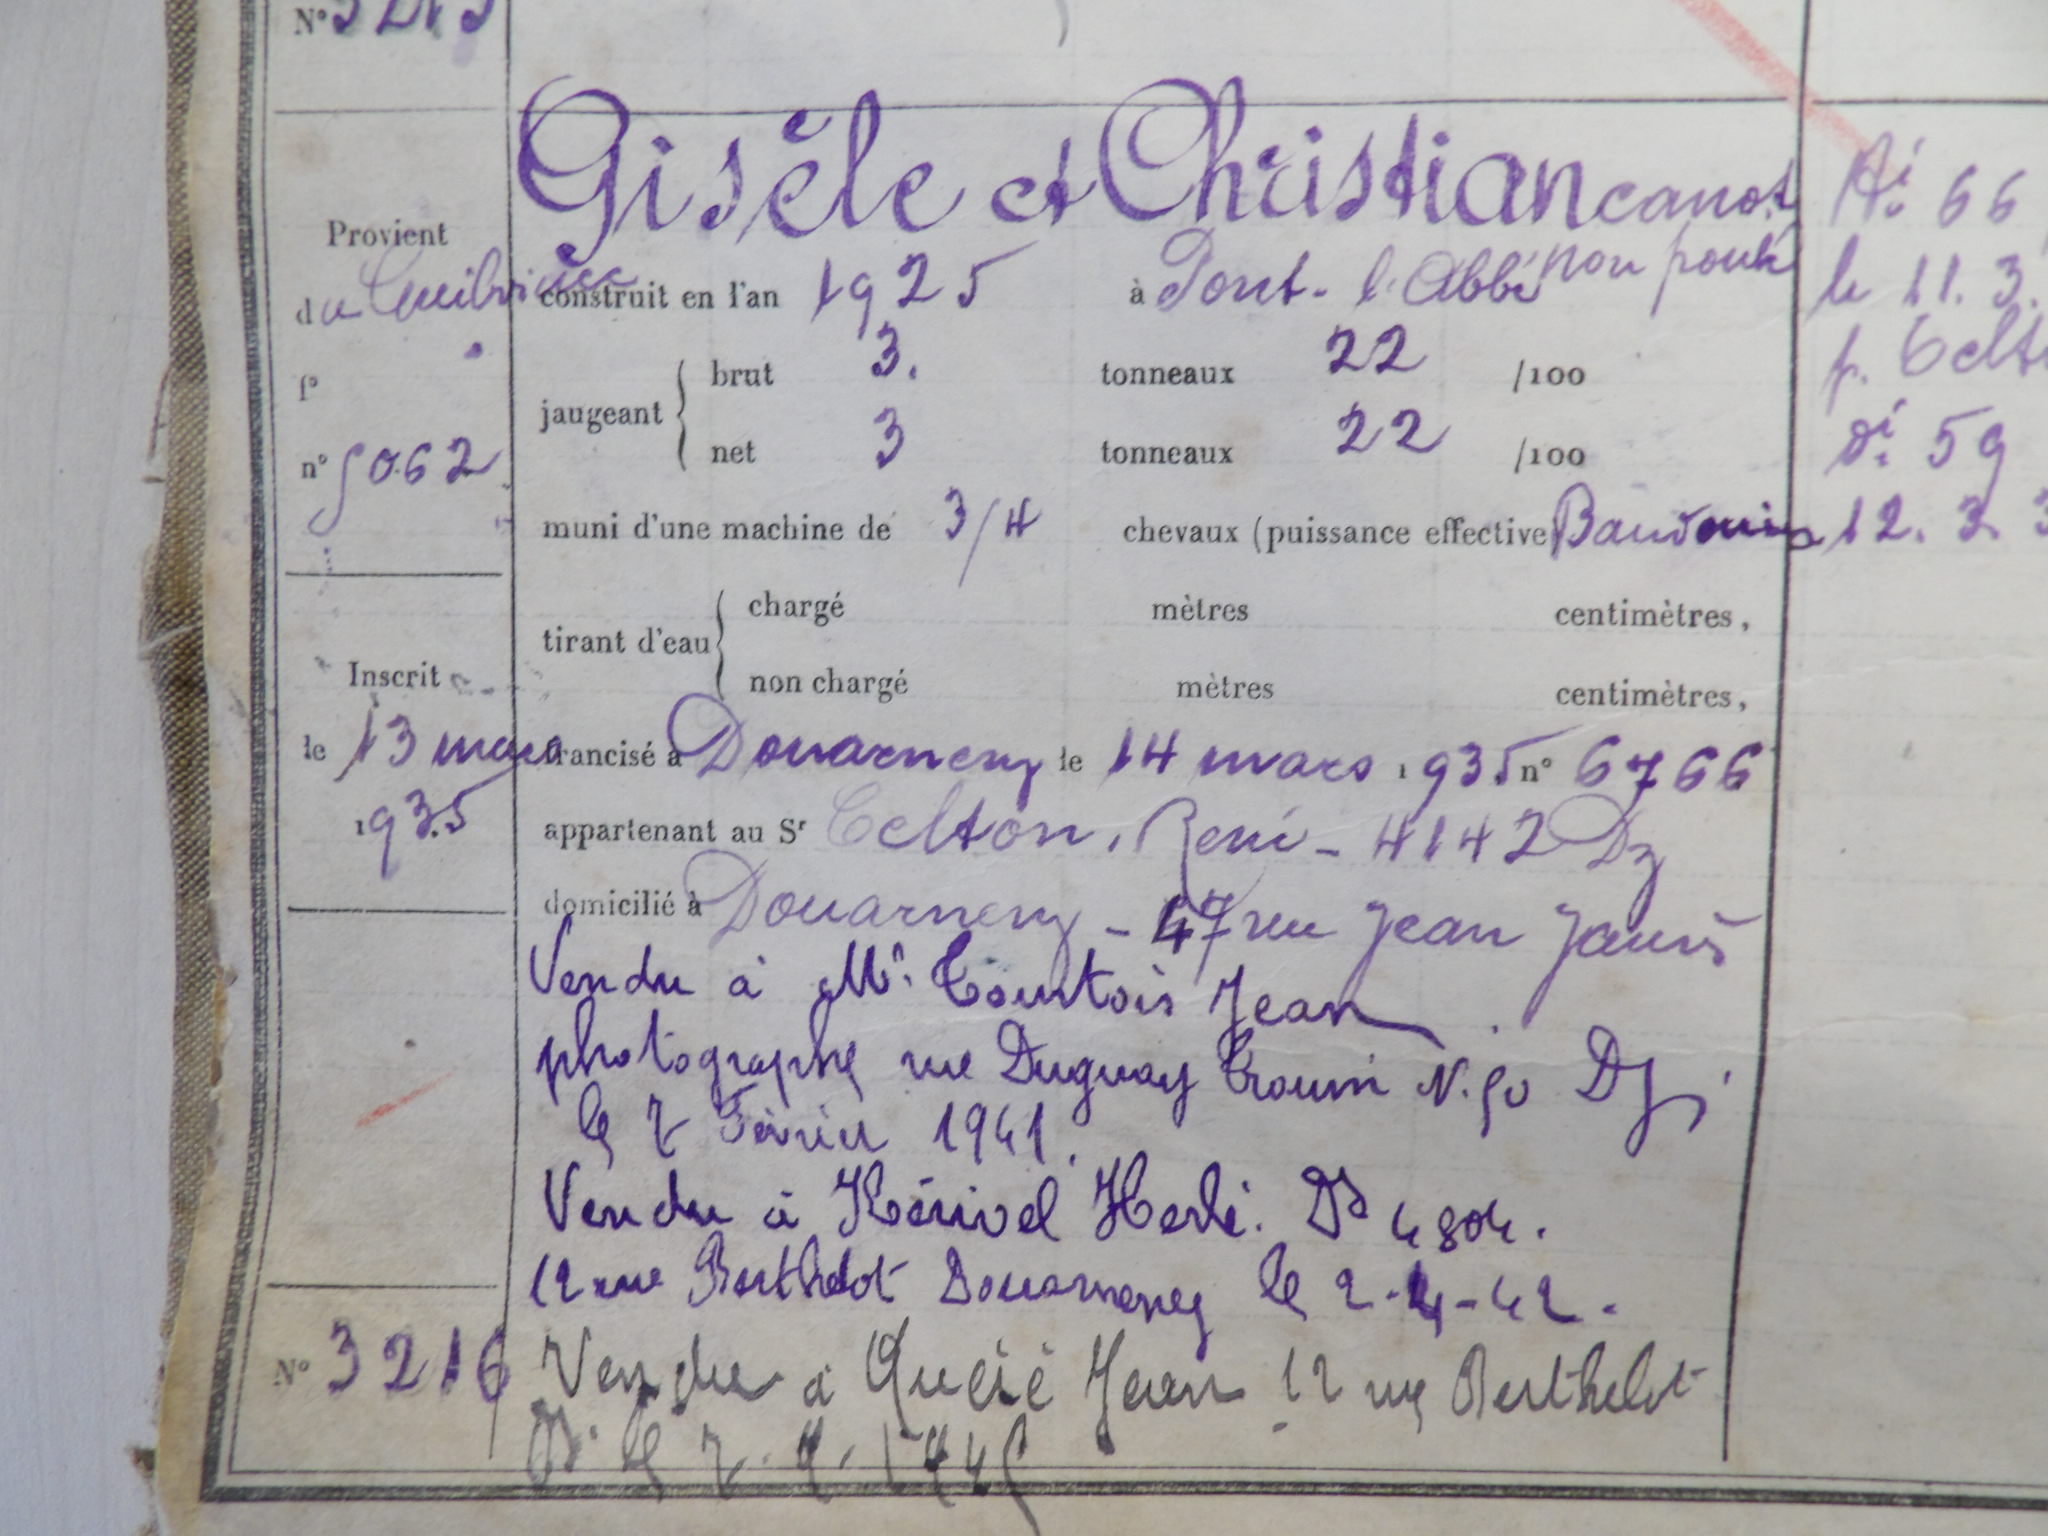 N° 3215
Gisèle et Christian canot
non ponté
Provient
du Guilvinec
f°
n° 5062
construit en l'an 1925 à Pont-l'Abbé
jaugeant brut 3. tonneaux 22 /100
net 3 tonneaux 22 /100
muni d'une machine de 3/4 chevaux (puissance effective) Baudouin
tirant d'eau chargé mètres centimètres,
non chargé mètres centimètres,
Inscrit
le 13 mars
1935
francisé à Douarnenez le 14 mars 1935 n° 6766
appartenant au Sr Celton, René - 4142 Dz
domicilié à Douarnenez - 47 rue Jean Jaurès
Vendu à Mr. Courtois Jean
photographe rue Duguay Trouin N. 50 Dz,
le 7 Février 1941.
Vendu à Kérivel Herlé. Dz 4804.
12 rue Berthelot Douarnenez le 2-4-42.
N° 3216
Vendu à Quéré Jean 12 rue Berthelot
Dz le 7. 4. 1945
Ai 66
le 11. 3.
p. Celto
Di 59
12. 3. 3